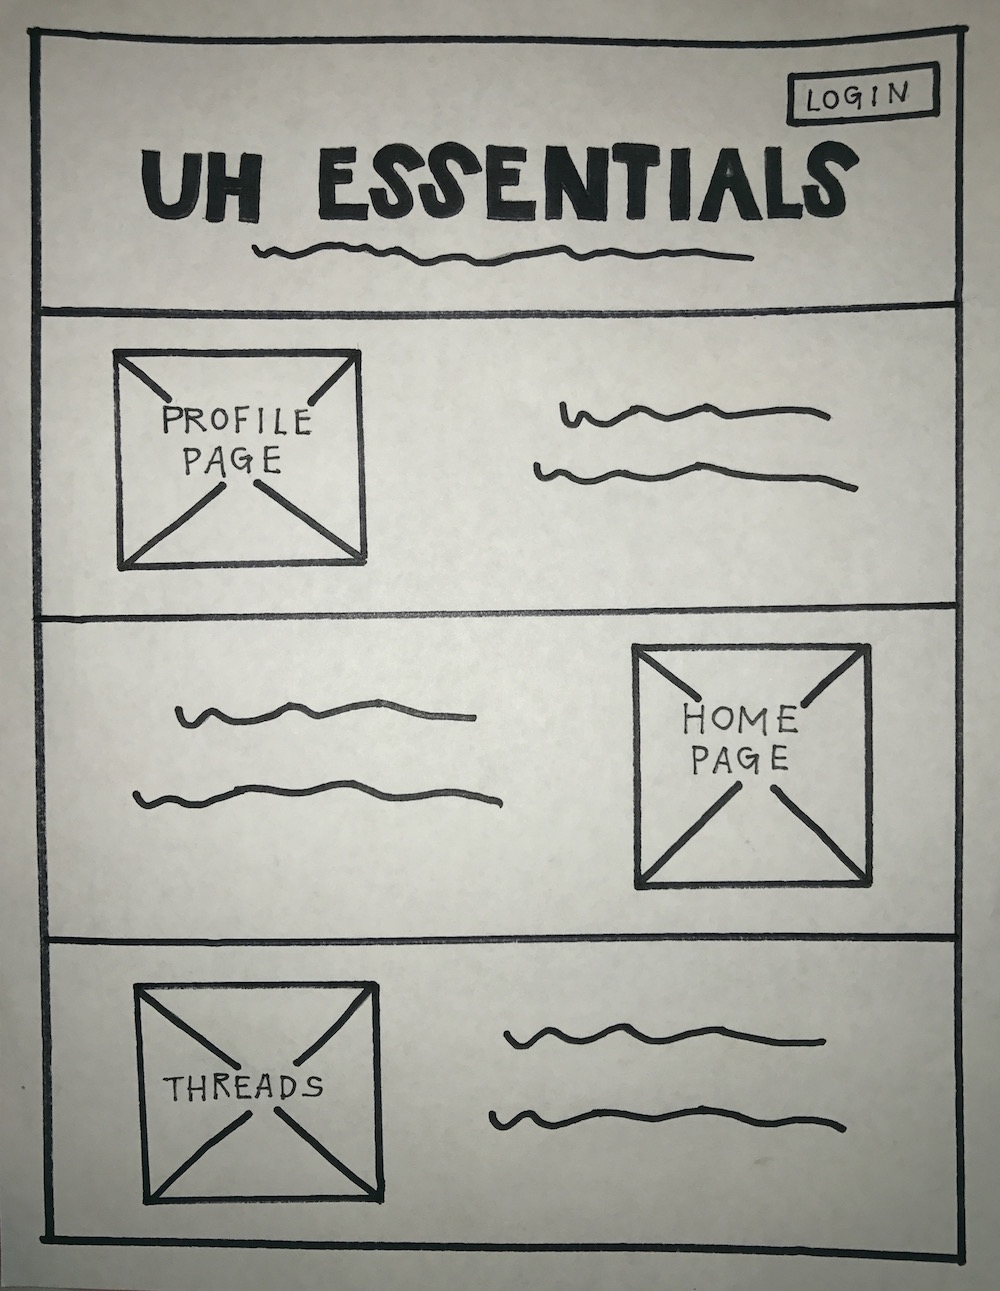 LOGIN
UH ESSENTIALS
PROFILE
PAGE
HOME
PAGE
THREADS